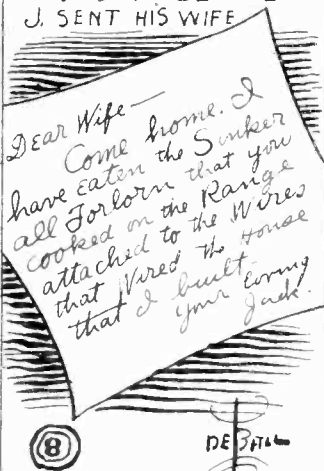 J. SENT HIS WIFE
Dear Wife—
Come home. I
have eaten the Sinker
all Forlorn that you
cooked on the Range
attached to the Wires
that Wired the House
that I built-
your loving
Jack.
8